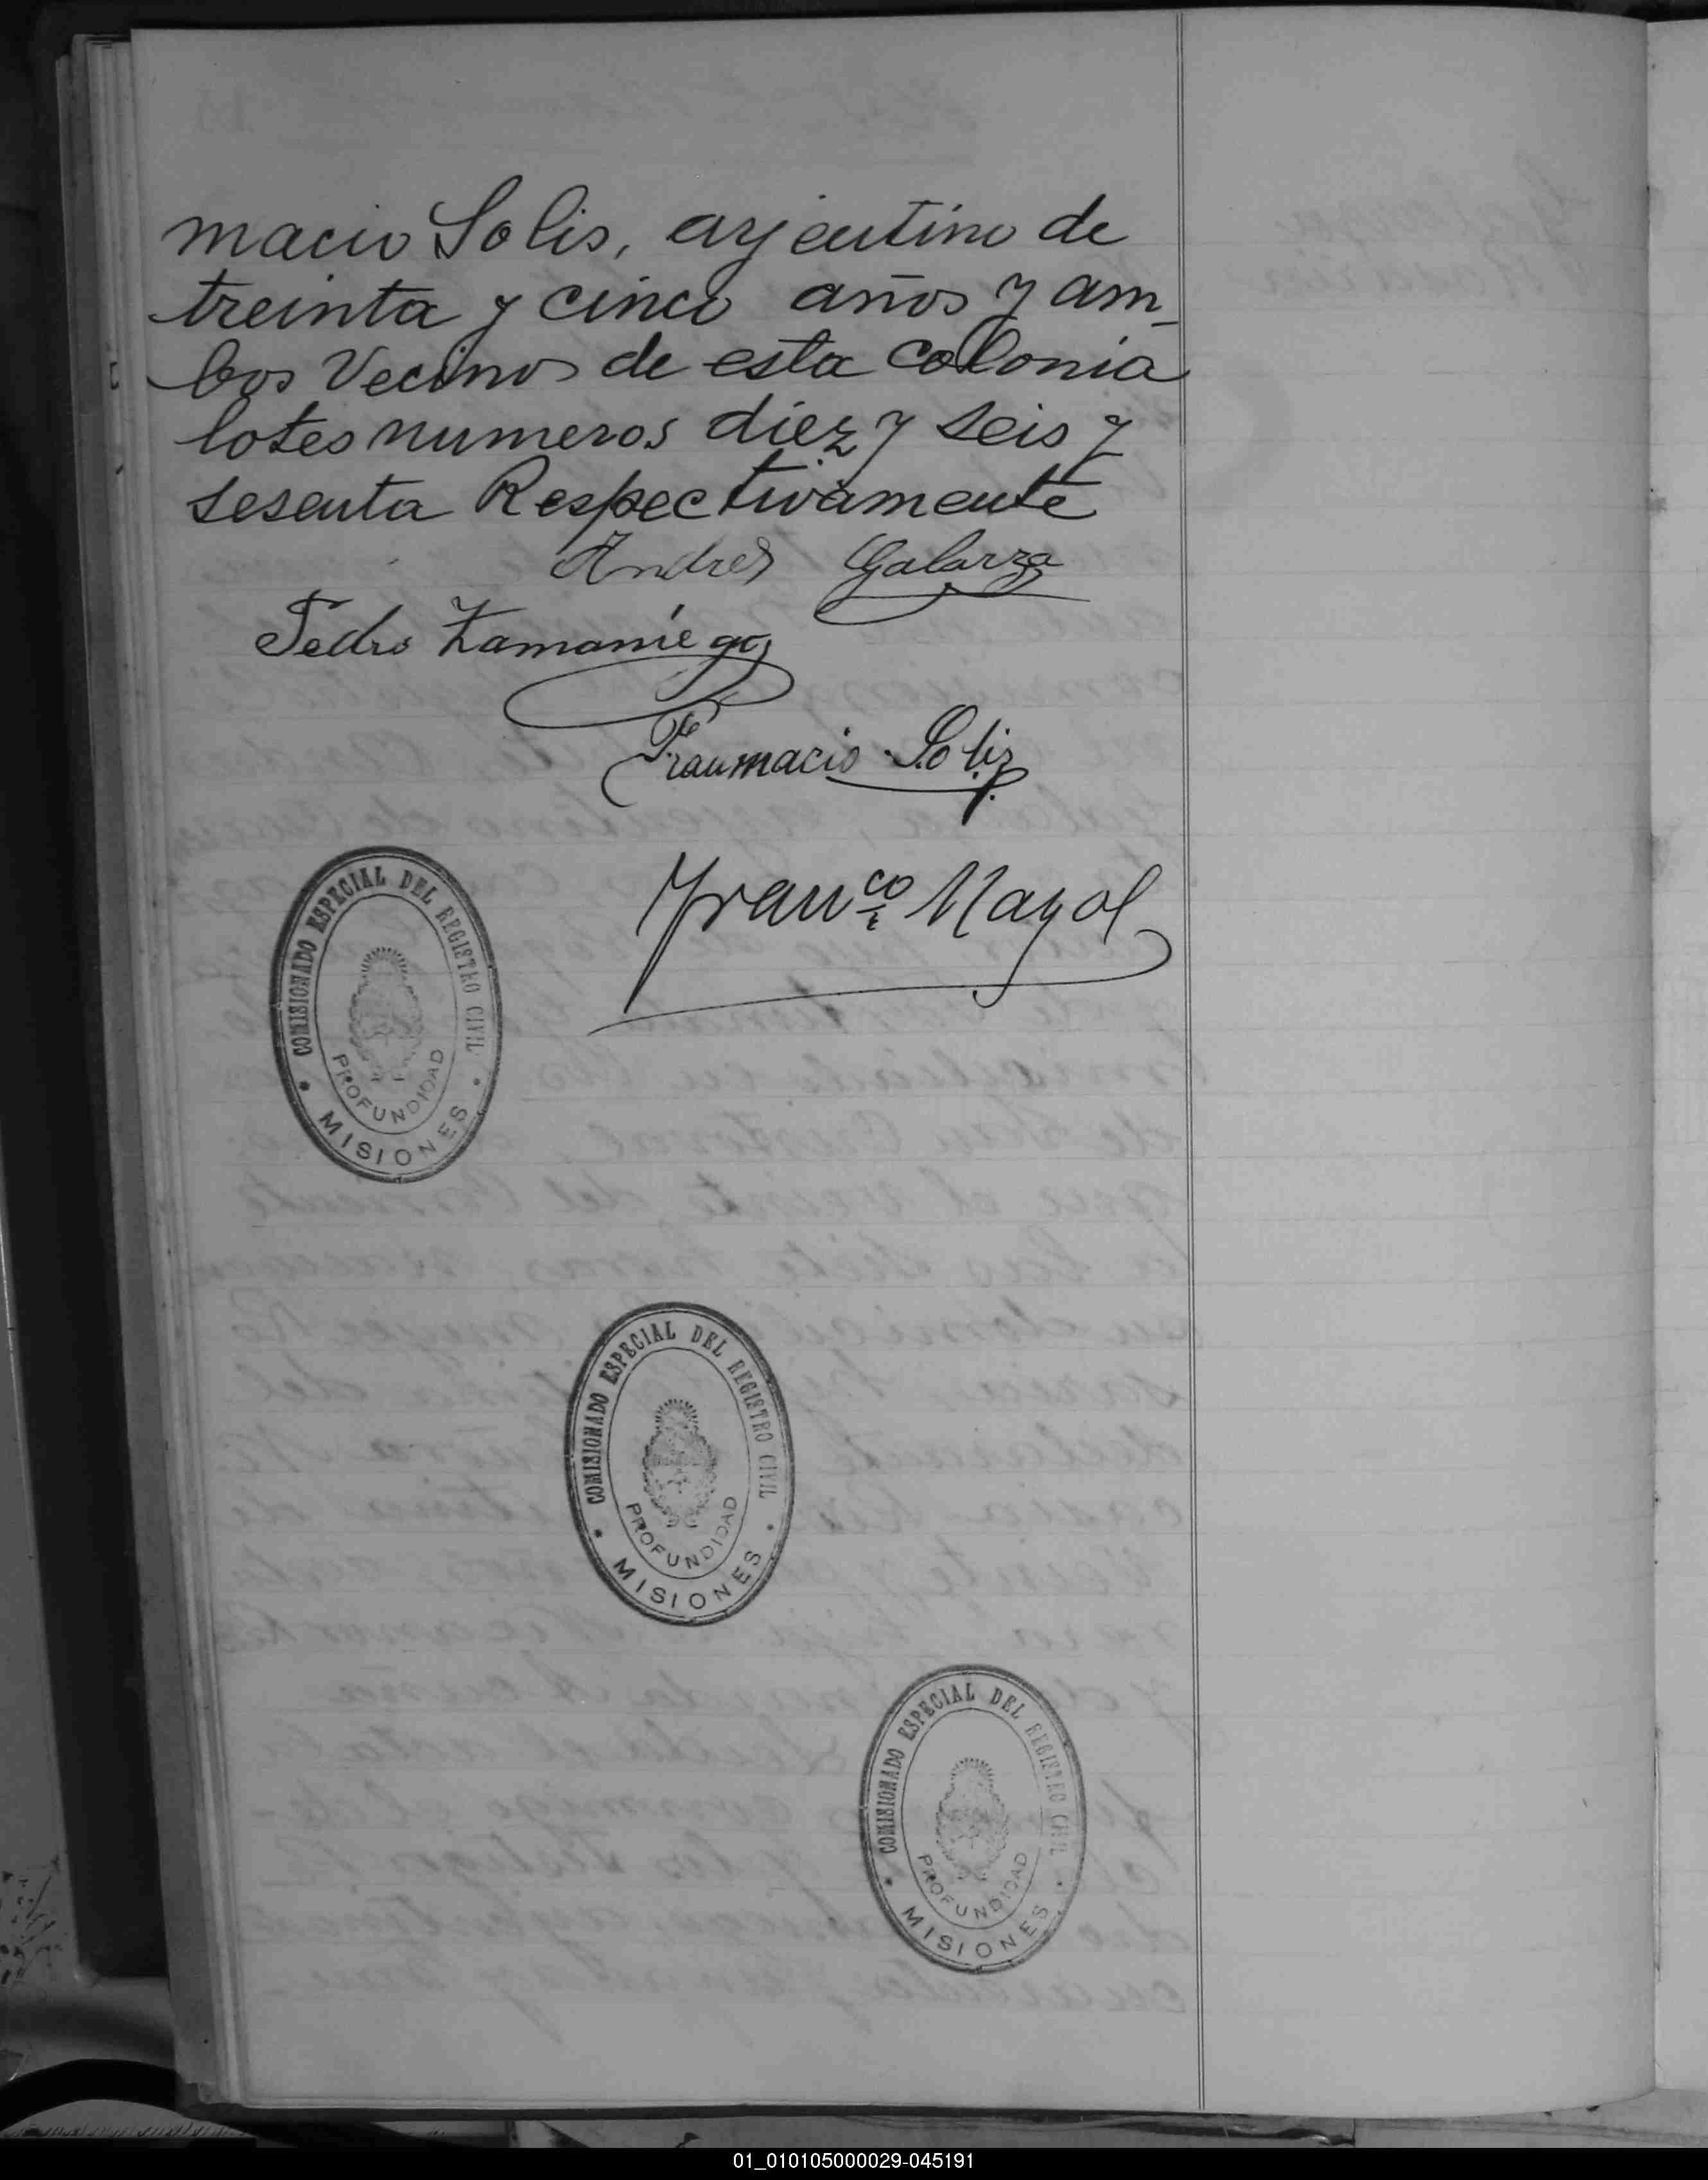 macio Solis, arjentino de
treinta y cinco años y am-
bos Vecinos de esta colonia
lotes numeros diez y seis y
sesenta Respectivamente
Andres Galarza
Pedro Zamaniego
Fraumacio Soliz
Franco Mayol
COMISIONADO ESPECIAL DEL REGISTRO CIVIL
PROFUNDIDAD
MISIONES
COMISIONADO ESPECIAL DEL REGISTRO CIVIL
PROFUNDIDAD
MISIONES
COMISIONADO ESPECIAL DEL REGISTRO CIVIL
PROFUNDIDAD
MISIONES
01_010105000029-045191